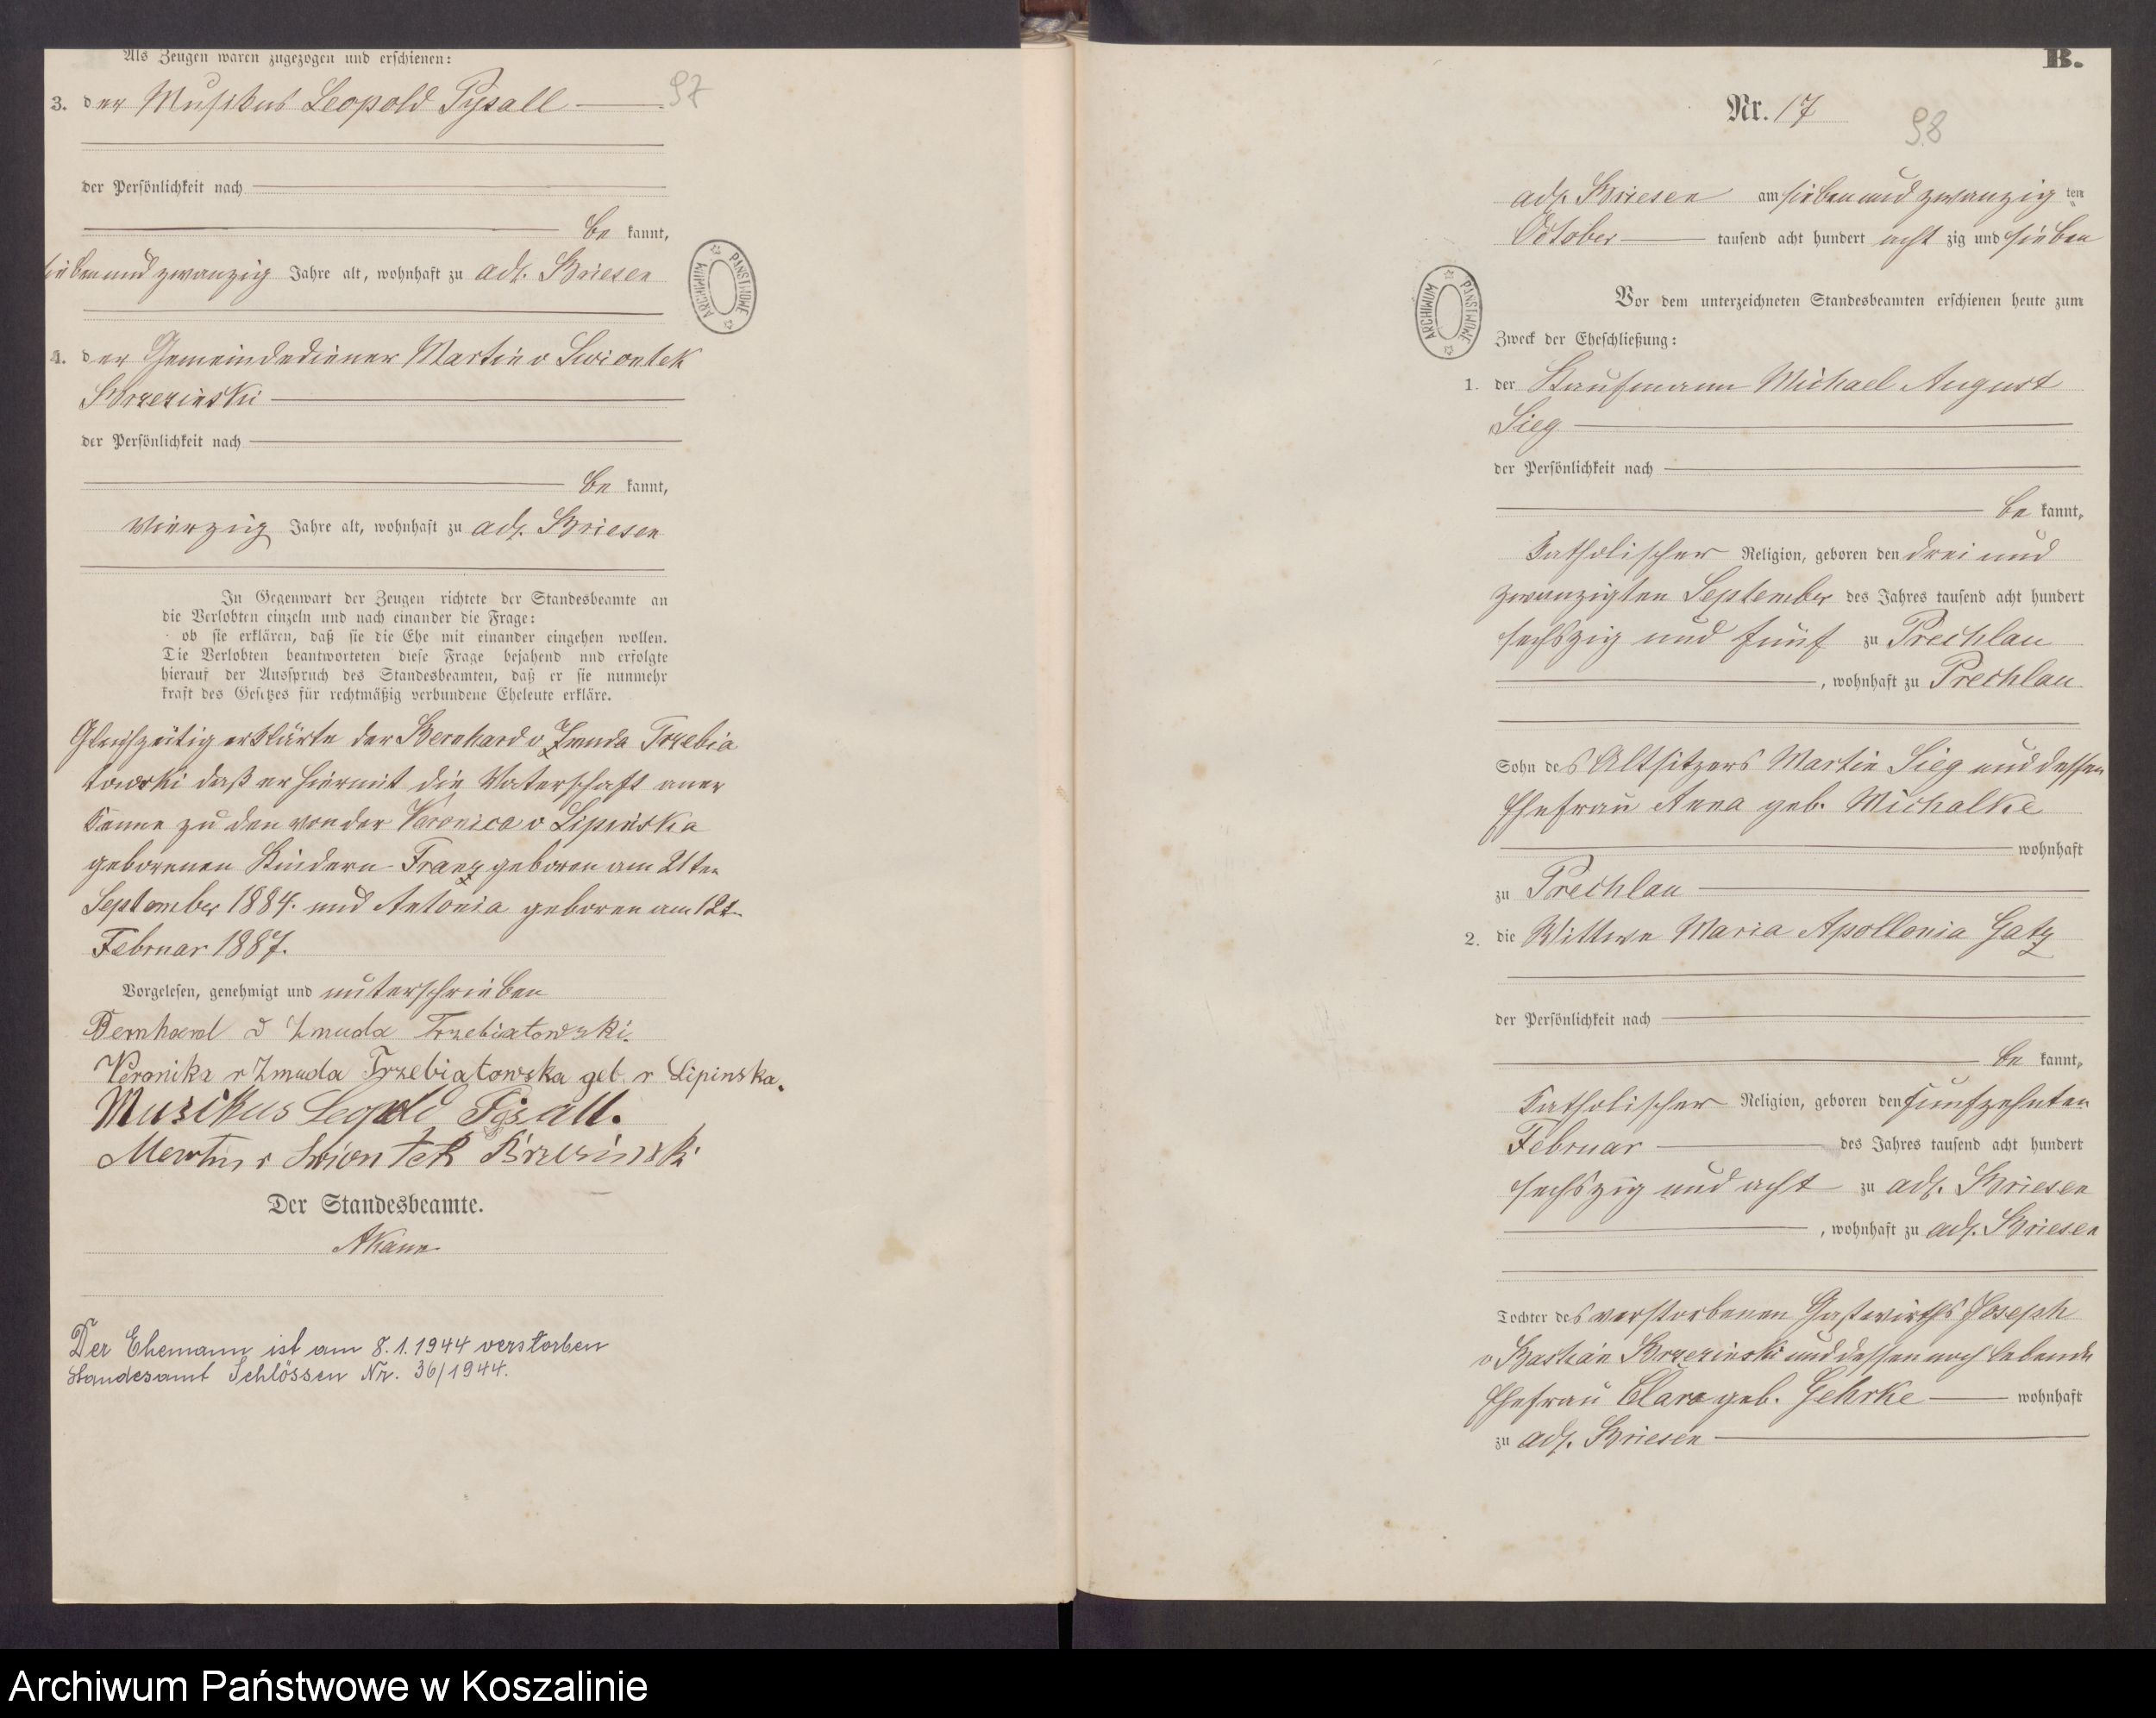 Als Zeugen waren zugezogen und erschienen:
3. der Musikus Leopold Pysall
97
der Persönlichkeit nach
be kannt,
siebenundzwanzig Jahre alt, wohnhaft zu adl. Briesen
ARCHIWUM PAŃSTWOWE
4. der Gemeindediener Martin v Swiontek
Brzezinski
der Persönlichkeit nach
be kannt,
vierzig Jahre alt, wohnhaft zu adl. Briesen
In Gegenwart der Zeugen richtete der Standesbeamte an
die Verlobten einzeln und nach einander die Frage:
ob sie erklären, daß sie die Ehe mit einander eingehen wollen.
Die Verlobten beantworteten diese Frage bejahend und erfolgte
hierauf der Ausspruch des Standesbeamten, daß er sie nunmehr
kraft des Gesetzes für rechtmäßig verbundene Eheleute erkläre.
Gleichzeitig erklärte der Bernhard v Zmuda Trzebia
towski daß er hiermit die Vaterschaft aner
kenne zu den von der Veronica v Lipinska
geborenen Kindern Franz geboren am 21ten
September 1884. und Antonia geboren am 12t
Februar 1887.
Vorgelesen, genehmigt und unterschrieben
Bernhard v Zmuda Trzebiatowski.
Veronika v Zmuda Trzebiatowska geb. v Lipinska.
Musikus Leopold Pysall.
Martin v Swiontek Brzesinski
Der Standesbeamte.
AKann
Der Ehemann ist am 8.1.1944 verstorben
Standesamt Schlössen Nr. 36/1944.
B.
Nr. 17
98
adl. Briesen am sieben und zwanzig ten
October tausend acht hundert acht zig und sieben
ARCHIWUM PAŃSTWOWE
Vor dem unterzeichneten Standesbeamten erschienen heute zum
Zweck der Eheschließung:
1. der Kaufmann Michael August
Sieg
der Persönlichkeit nach
be kannt,
katholischer Religion, geboren den drei und
zwanzigten September des Jahres tausend acht hundert
sechszig und fünf zu Prechlau
, wohnhaft zu Prechlau
Sohn des Altsitzers Martin Sieg und dessen
Ehefrau Anna geb. Michalke
wohnhaft
zu Prechlau
2. die Wittwe Maria Apollonia Gatz
der Persönlichkeit nach
be kannt,
katholischer Religion, geboren den fünfzehnten
Februar des Jahres tausend acht hundert
sechszig und acht zu adl. Briesen
, wohnhaft zu adl. Briesen
Tochter des verstorbenen Gastwirths Joseph
v Bastian Brzezinski und dessen noch lebende
Ehefrau Clara geb. Gehrke wohnhaft
zu adl. Briesen
Archiwum Państwowe w Koszalinie